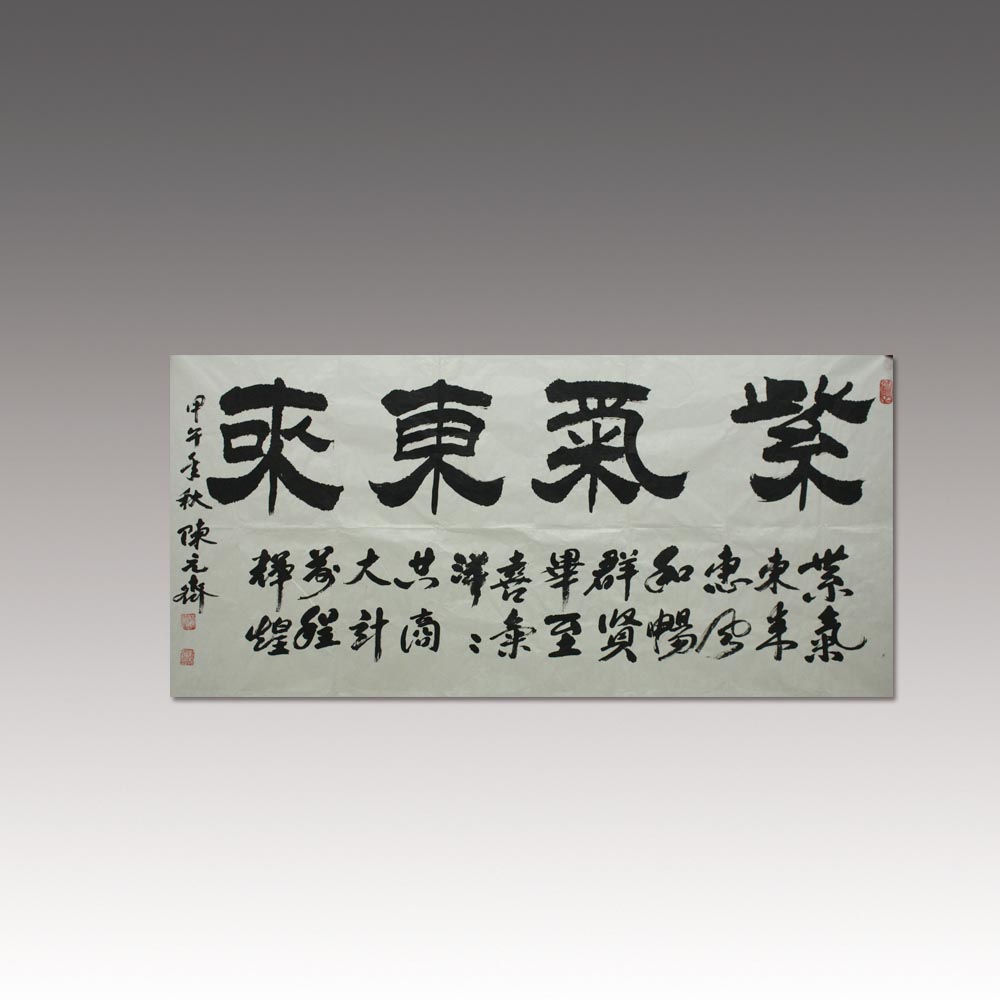 紫氣東來
紫氣
東來
惠風
和暢
群賢
畢至
喜氣
洋洋
共商
大計
前程
輝煌
甲午年秋 陳元齋